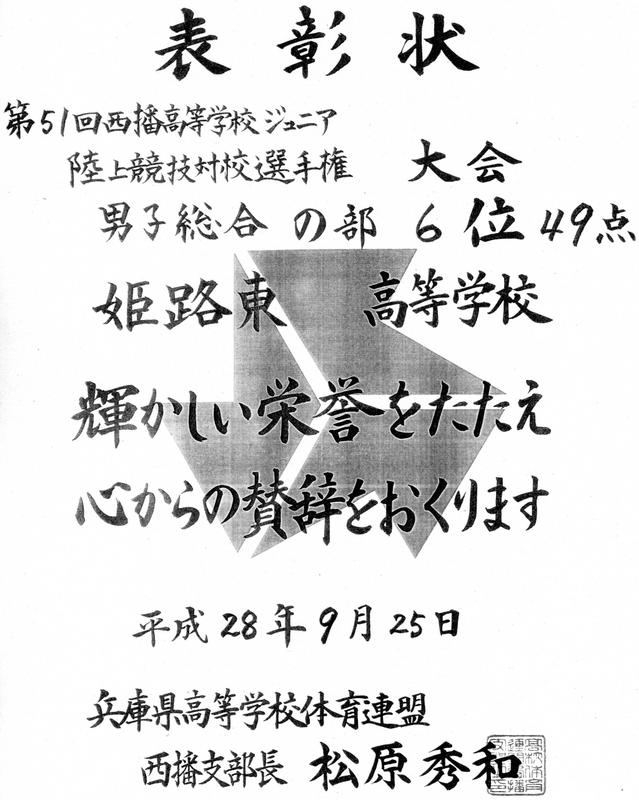 表彰状
第51回西播高等学校ジュニア
陸上競技対校選手権 大会
男子総合 の部 6位 49点
姫路東 高等学校
輝かしい栄誉をたたえ
心からの賛辞をおくります
平成28年9月25日
兵庫県高等学校体育連盟
西播支部長 松原秀和